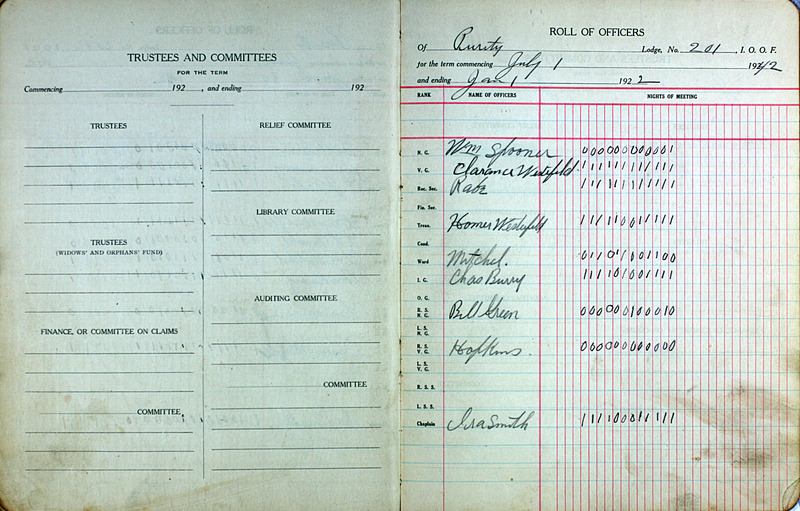 TRUSTEES AND COMMITTEES
FOR THE TERM
Commencing 192 , and ending 192
TRUSTEES
TRUSTEES
(WIDOWS' AND ORPHANS' FUND)
FINANCE, OR COMMITTEE ON CLAIMS
COMMITTEE
RELIEF COMMITTEE
LIBRARY COMMITTEE
AUDITING COMMITTEE
COMMITTEE
ROLL OF OFFICERS
Of Purity Lodge, No. 201 , I. O. O. F.
for the term commencing July 1 1942
and ending Jan 1 192
RANK NAME OF OFFICERS NIGHTS OF MEETING
N. G. Wm Spooner 0 0 0 0 0 0 0 0 0 0 1
V. G. Clarance Westefeld 1 1 1 1 1 1 1 1 1 1 1
Rec. Sec. 1 1 1 1 1 1 1 1 1 1 1
Fin. Sec.
Treas. Homer Westefeld 1 1 1 1 0 0 1 1 1 1 1
Cond.
Ward Mitchel. 0 1 1 0 1 1 0 1 1 0 0
I. G. Chas Burry 1 1 1 1 0 1 0 0 1 1 1
O. G.
R. S. N. G. Bill Green 0 0 0 0 0 0 1 0 0 1 0
L. S. N. G.
R. S. V. G. Hopkins 0 0 0 0 0 0 0 0 0 0 0
L. S. V. G.
R. S. S.
L. S. S.
Chaplain Ira Smith 1 1 1 1 0 0 0 1 1 1 1